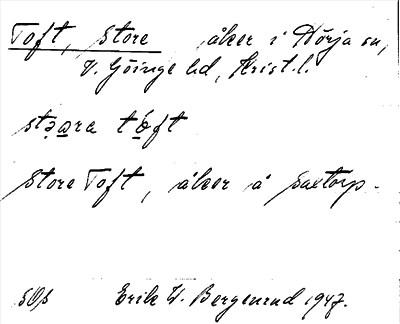 Toft, Store åker i Nörja sn,
V. Göinge hd, Krist. l.
stǝara tóft
Store Toft, åker å Saxtorp.
SOs Erik W. Bergenrud 1947.